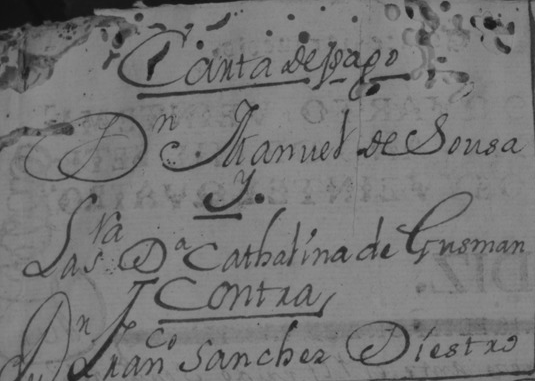 Carta de pago
Dn Manuel de Sousa
Y.
La sra Da Cathalina de Gusman
Contra
Dn Franco Sanchez Diestro